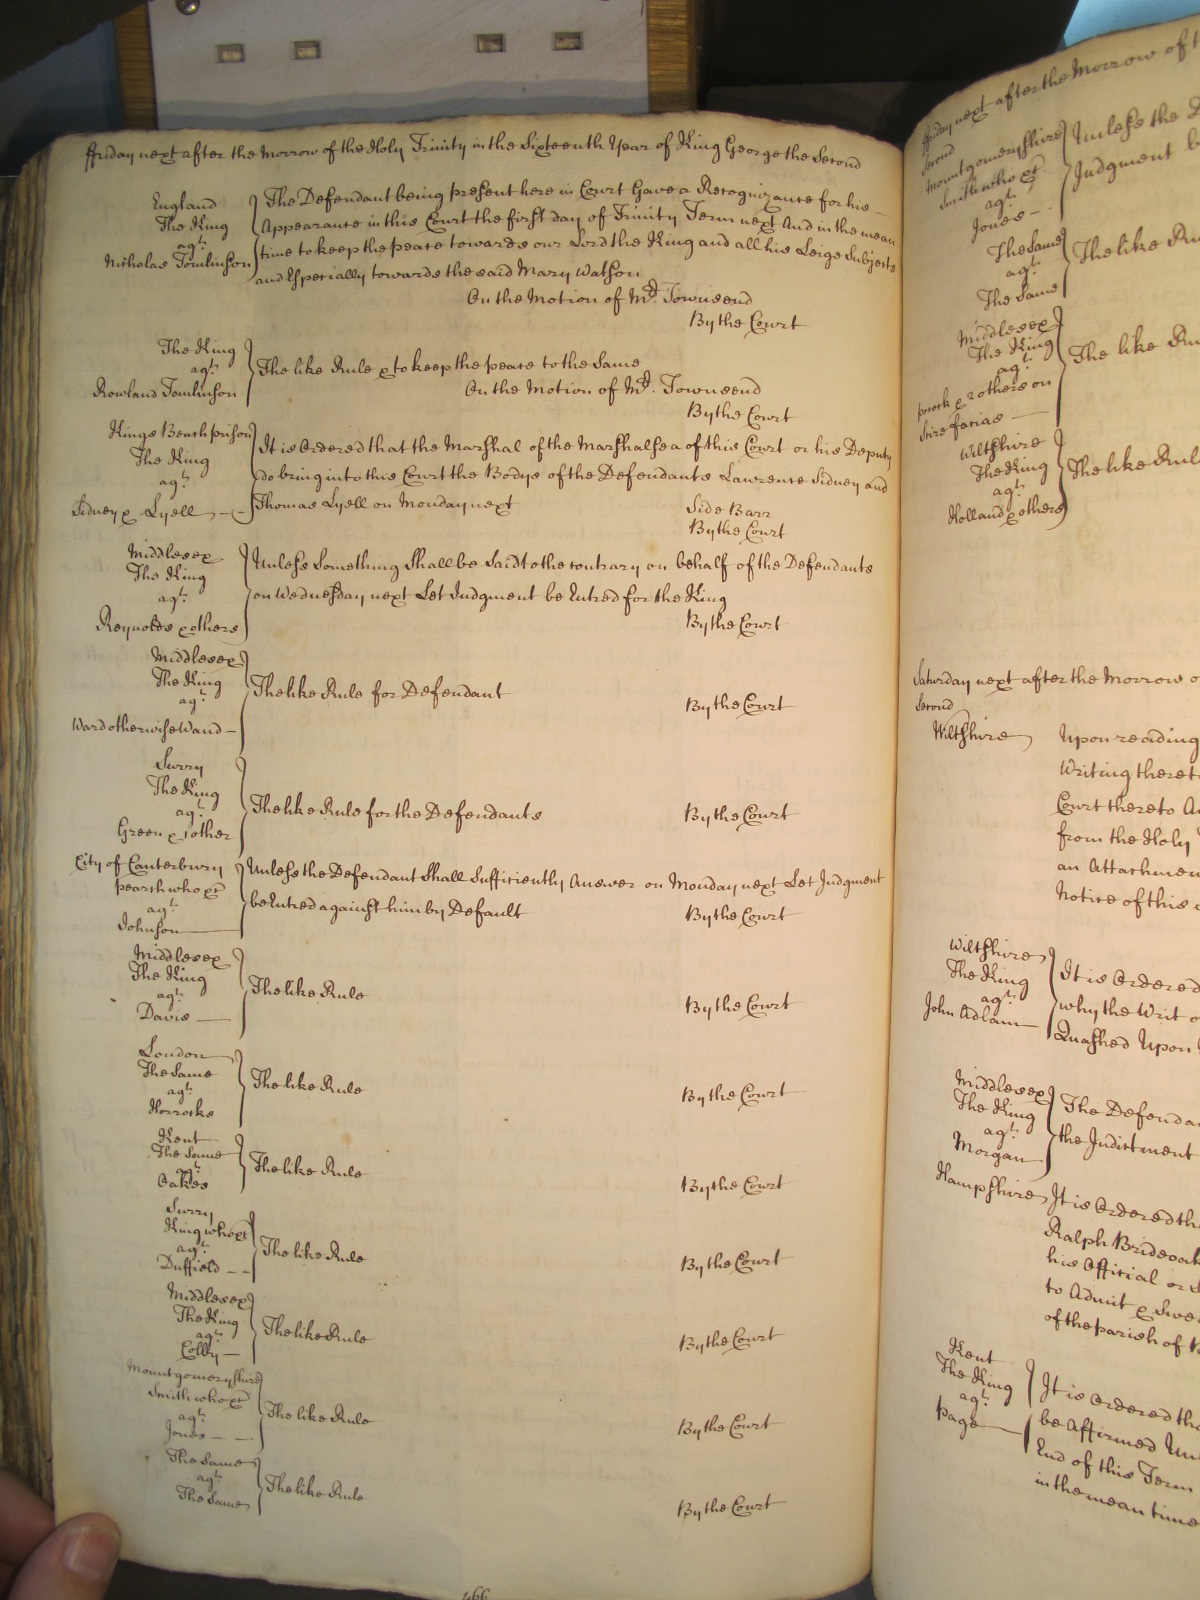 ffriday next after the Morrow of the Holy Trinity in the Sixteenth Year of King George the Second
England
The King
agt.
Nicholas Tomlinson
The Defendant being present here in Court Gave a Recognizance for his
Appearance in this Court the first day of Trinity Term next And in the mean
time to keep the peace towards our Lord the King and all his Leige Subjects
and Especially towards the said Mary Watson
On the Motion of Mr. Townsend
By the Court
The King
agt.
Rowland Tomlinson
The like Rule & to keep the peace to the Same
On the Motion of Mr. Townsend
By the Court
Kings Bench prison
The King
agt.
Sidney & Lyell
It is Ordered that the Marshal of the Marshalsea of this Court or his Deputy
do bring into this Court the Bodys of the Defendants Lawrence Sidney and
Thomas Lyell on Monday next
Side Barr
By the Court
Middlesex
The King
agt.
Reynolds & others
Unless Something Shall be Said to the contrary on behalf of the Defendants
on Wednesday next Let Judgment be Entred for the King
By the Court
Middlesex
The King
agt.
Ward otherwise Wand
The like Rule for Defendant
By the Court
Surry
The King
agt.
Green & 1 other
The like Rule for the Defendants
By the Court
City of Canterbury
pearsh who &c
agt.
Johnson
Unless the Defendant Shall Sufficiently Answer on Monday next Let Judgment
be Entred against him by Default
By the Court
Middlesex
The King
agt.
Davis
The like Rule
By the Court
London
The Same
agt.
Horrocks
The like Rule
By the Court
Kent
The Same
agt.
Oakes
The like Rule
By the Court
Surry
King who &c
agt.
Duffield
The like Rule
By the Court
Middlesex
The King
agt.
Colby
The like Rule
By the Court
Montgomeryshire
Smith who &c
agt.
Jones
The like Rule
By the Court
The Same
agt.
The Same
The like Rule
By the Court
466
ffriday next after the Morrow of
Second
Montgomeryshire
Smith who &c
agt.
Jones
Unless the
Judgment
The Same
agt.
The Same
The like
Middlesex
The King
agt.
& 2 others on
Scire facias
The like
Wiltshire
The King
agt.
Holland & others
The like Rul
Saturday next after the Morrow
Second
Wiltshire
Upon reading
Writing theret
Court thereto
from the Holy
an Attachmen
Notice of this
Wiltshire
The King
agt.
John Adlam
It is Ordered
why the Writ
Quashed Upon
Middlesex
The King
agt.
Morgan
The Defenda
the Indictment
Hampshire
It is Ordered th
Ralph
his Official or
to Admit & Swe
of the parish of
Kent
The King
agt.
Page
It is Ordered tha
be Affirmed Un
End of this Term
in the mean time